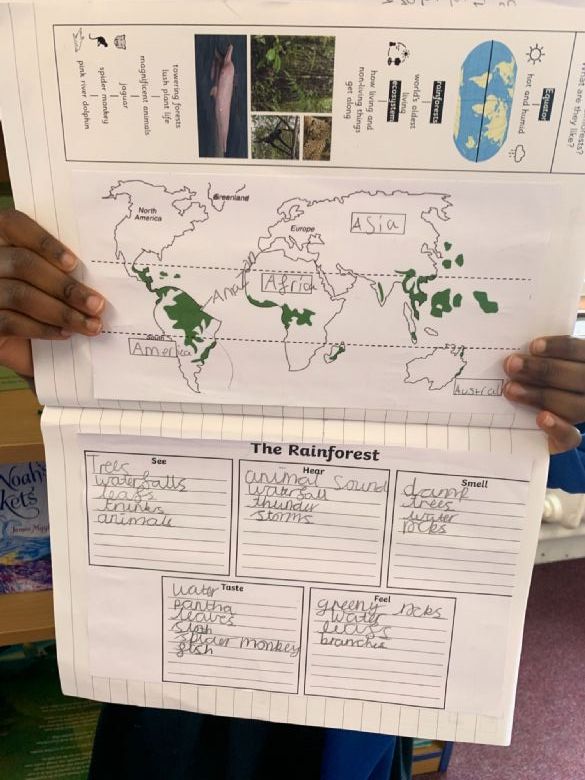 What are they like?
Equator
hot and humid
rainforests
world's oldest
living
ecosystem
how living and
non-living things
get along
towering forests
lush plant life
magnificent animals
jaguar
spider monkey
pink river dolphin
Greenland
North
America
Europe
Asia
Africa
Ama
South
America
Austral
The Rainforest
See
Trees
waterfalls
leafs
trunks
animals
Hear
animal Sound
waterfall
thunder
storms
Smell
damp
trees
water
rocks
Taste
water
pantha
leaves
sloth
spider monkey
fish
Feel
greeny rocks
water
leafs
branches
Noah's
kets
James May